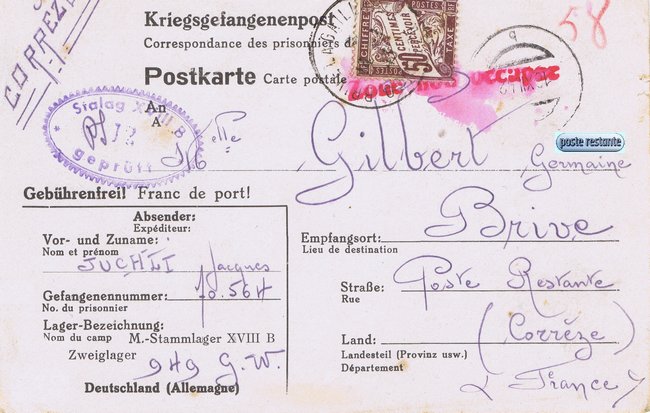 CORREZE
Kriegsgefangenenpost
Correspondance des prisonniers d
Postkarte Carte postale
CHIFFRE POSTES TAXE RF
50 CENTIMES À PERCEVOIR
Zone non occupée
58
Stalag XVIII B
geprüft
An
A
Melle Gilbert Germaine
poste restante
Gebührenfrei! Franc de port!
Absender:
Expéditeur:
Vor- und Zuname:
Nom et prénom
JUCHLI Jacques
Gefangenennummer:
No. du prisonnier
Lager-Bezeichnung:
Nom du camp M.-Stammlager XVIII B
Zweiglager
949 G.W.
Deutschland (Allemagne)
Brive
Empfangsort:
Lieu de destination
Straße: Poste Restante
Rue
Land: (Corrèze)
Landesteil (Provinz usw.)
Département
France